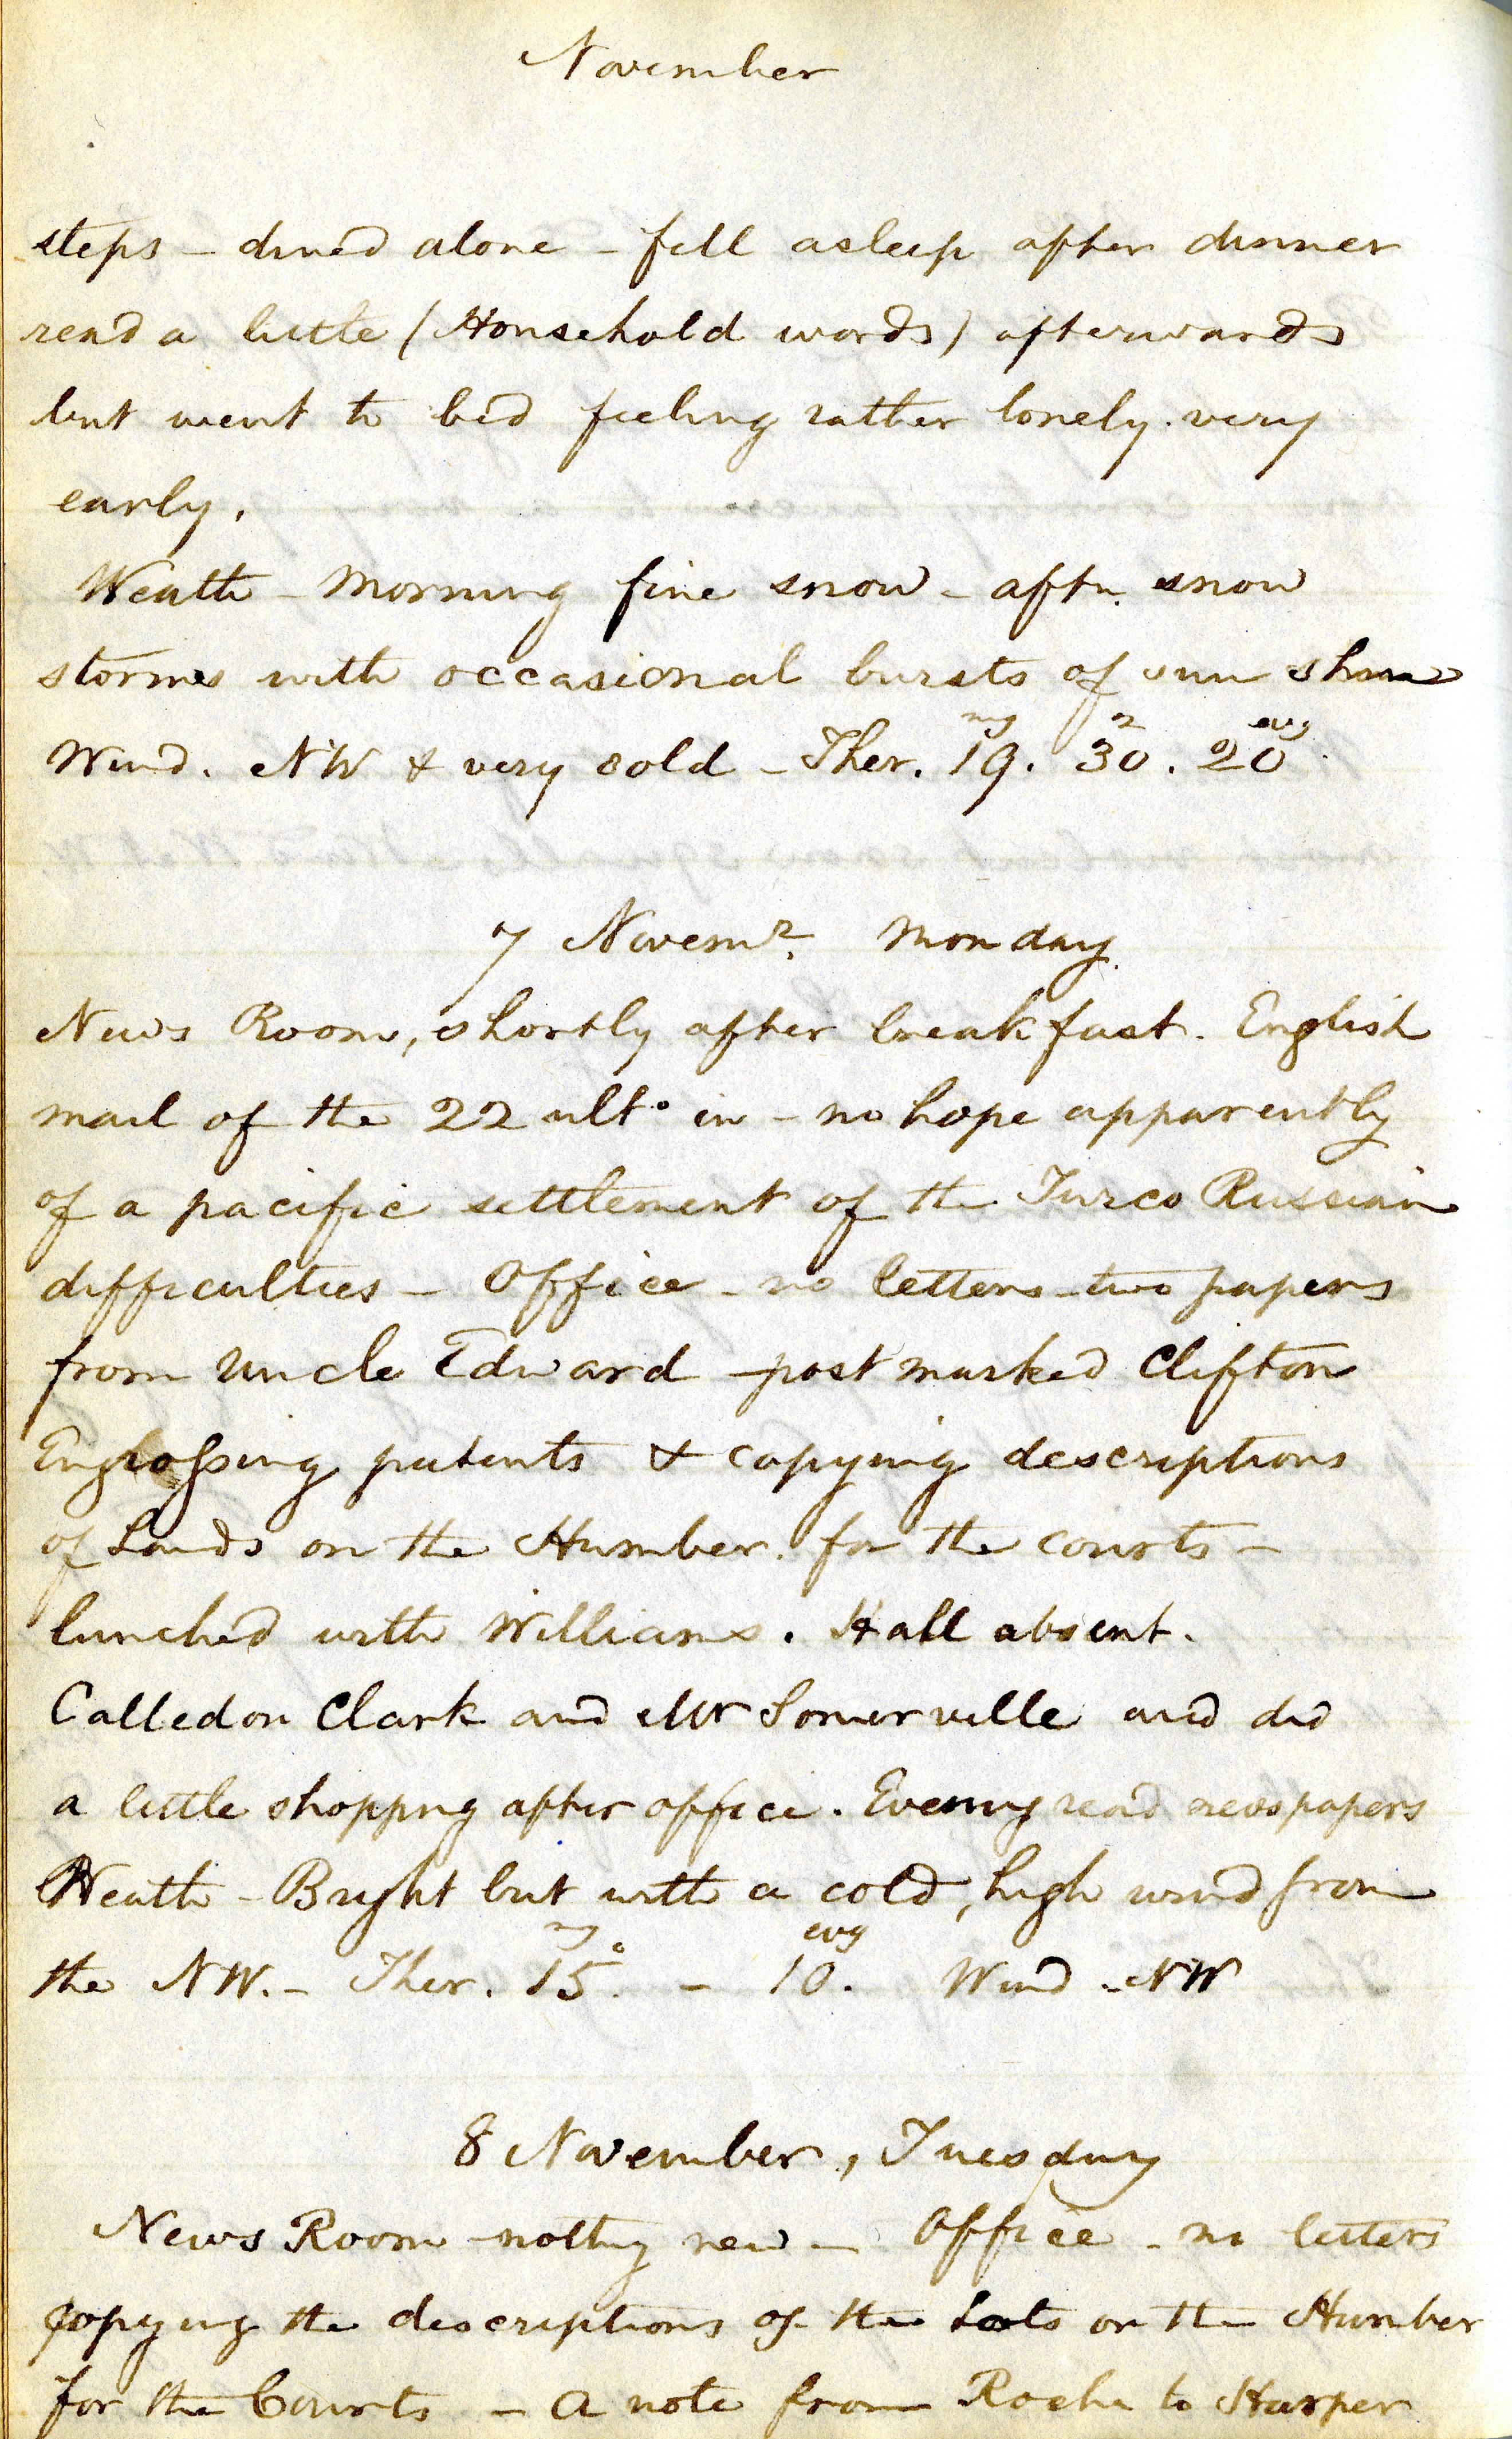 November
steps - dined alone - fell asleep after dinner
read a little (Household words) afterwards
but went to bed feeling rather lonely. very
early.
Weath - Morning fine snow - aftn. snow
storms with occasional bursts of sun shine
mg 2 evg
Wind. NW & very cold - Ther. 19. 30. 20
7 Novemr. Monday.
News Room, shortly after breakfast. English
mail of the 22 ulto in - no hope apparently
of a pacific settlement of the Turco Russian
difficulties - Office - no letters - two papers
from Uncle Edward - post marked Clifton
Engrossing patents & copying descriptions
of Lands on the Humber. for the courts -
lunched with Williams. Hall absent.
Called on Clark and Mr Somerville and did
a little shopping after office. Evening read newspapers
Weath - Bright but with a cold, high wind from
mg evg
the NW. - Ther. 15°. - 10. Wind - NW
8 November, Tuesday
News Room - nothg new - Office - no letters
Copying the descriptions of the Lots on the Humber
for the Courts - A note from Roche to Harper